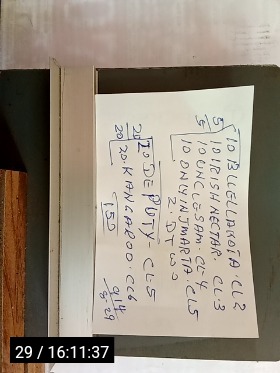 5/5
10 BLLELLAKOTA. CL2
10 IRISH NECTAR. CL.3
10 UNCLESAM. CL 4
10 ONLYINJMARTA. CL5
2. D T W O
20/20
20 DEPUTY - CL.5
20. KANGAROO. CL6
150
29 / 16:11:37